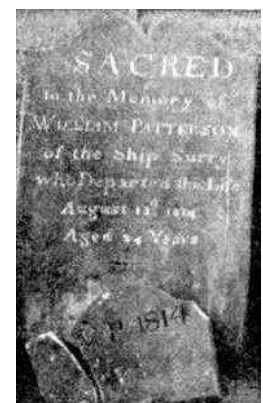 SACRED
to the Memory of
WILLIAM PATTERSON
of the Ship Surry
who Departed this Life
August 1814
Aged 24 Years
P 1814